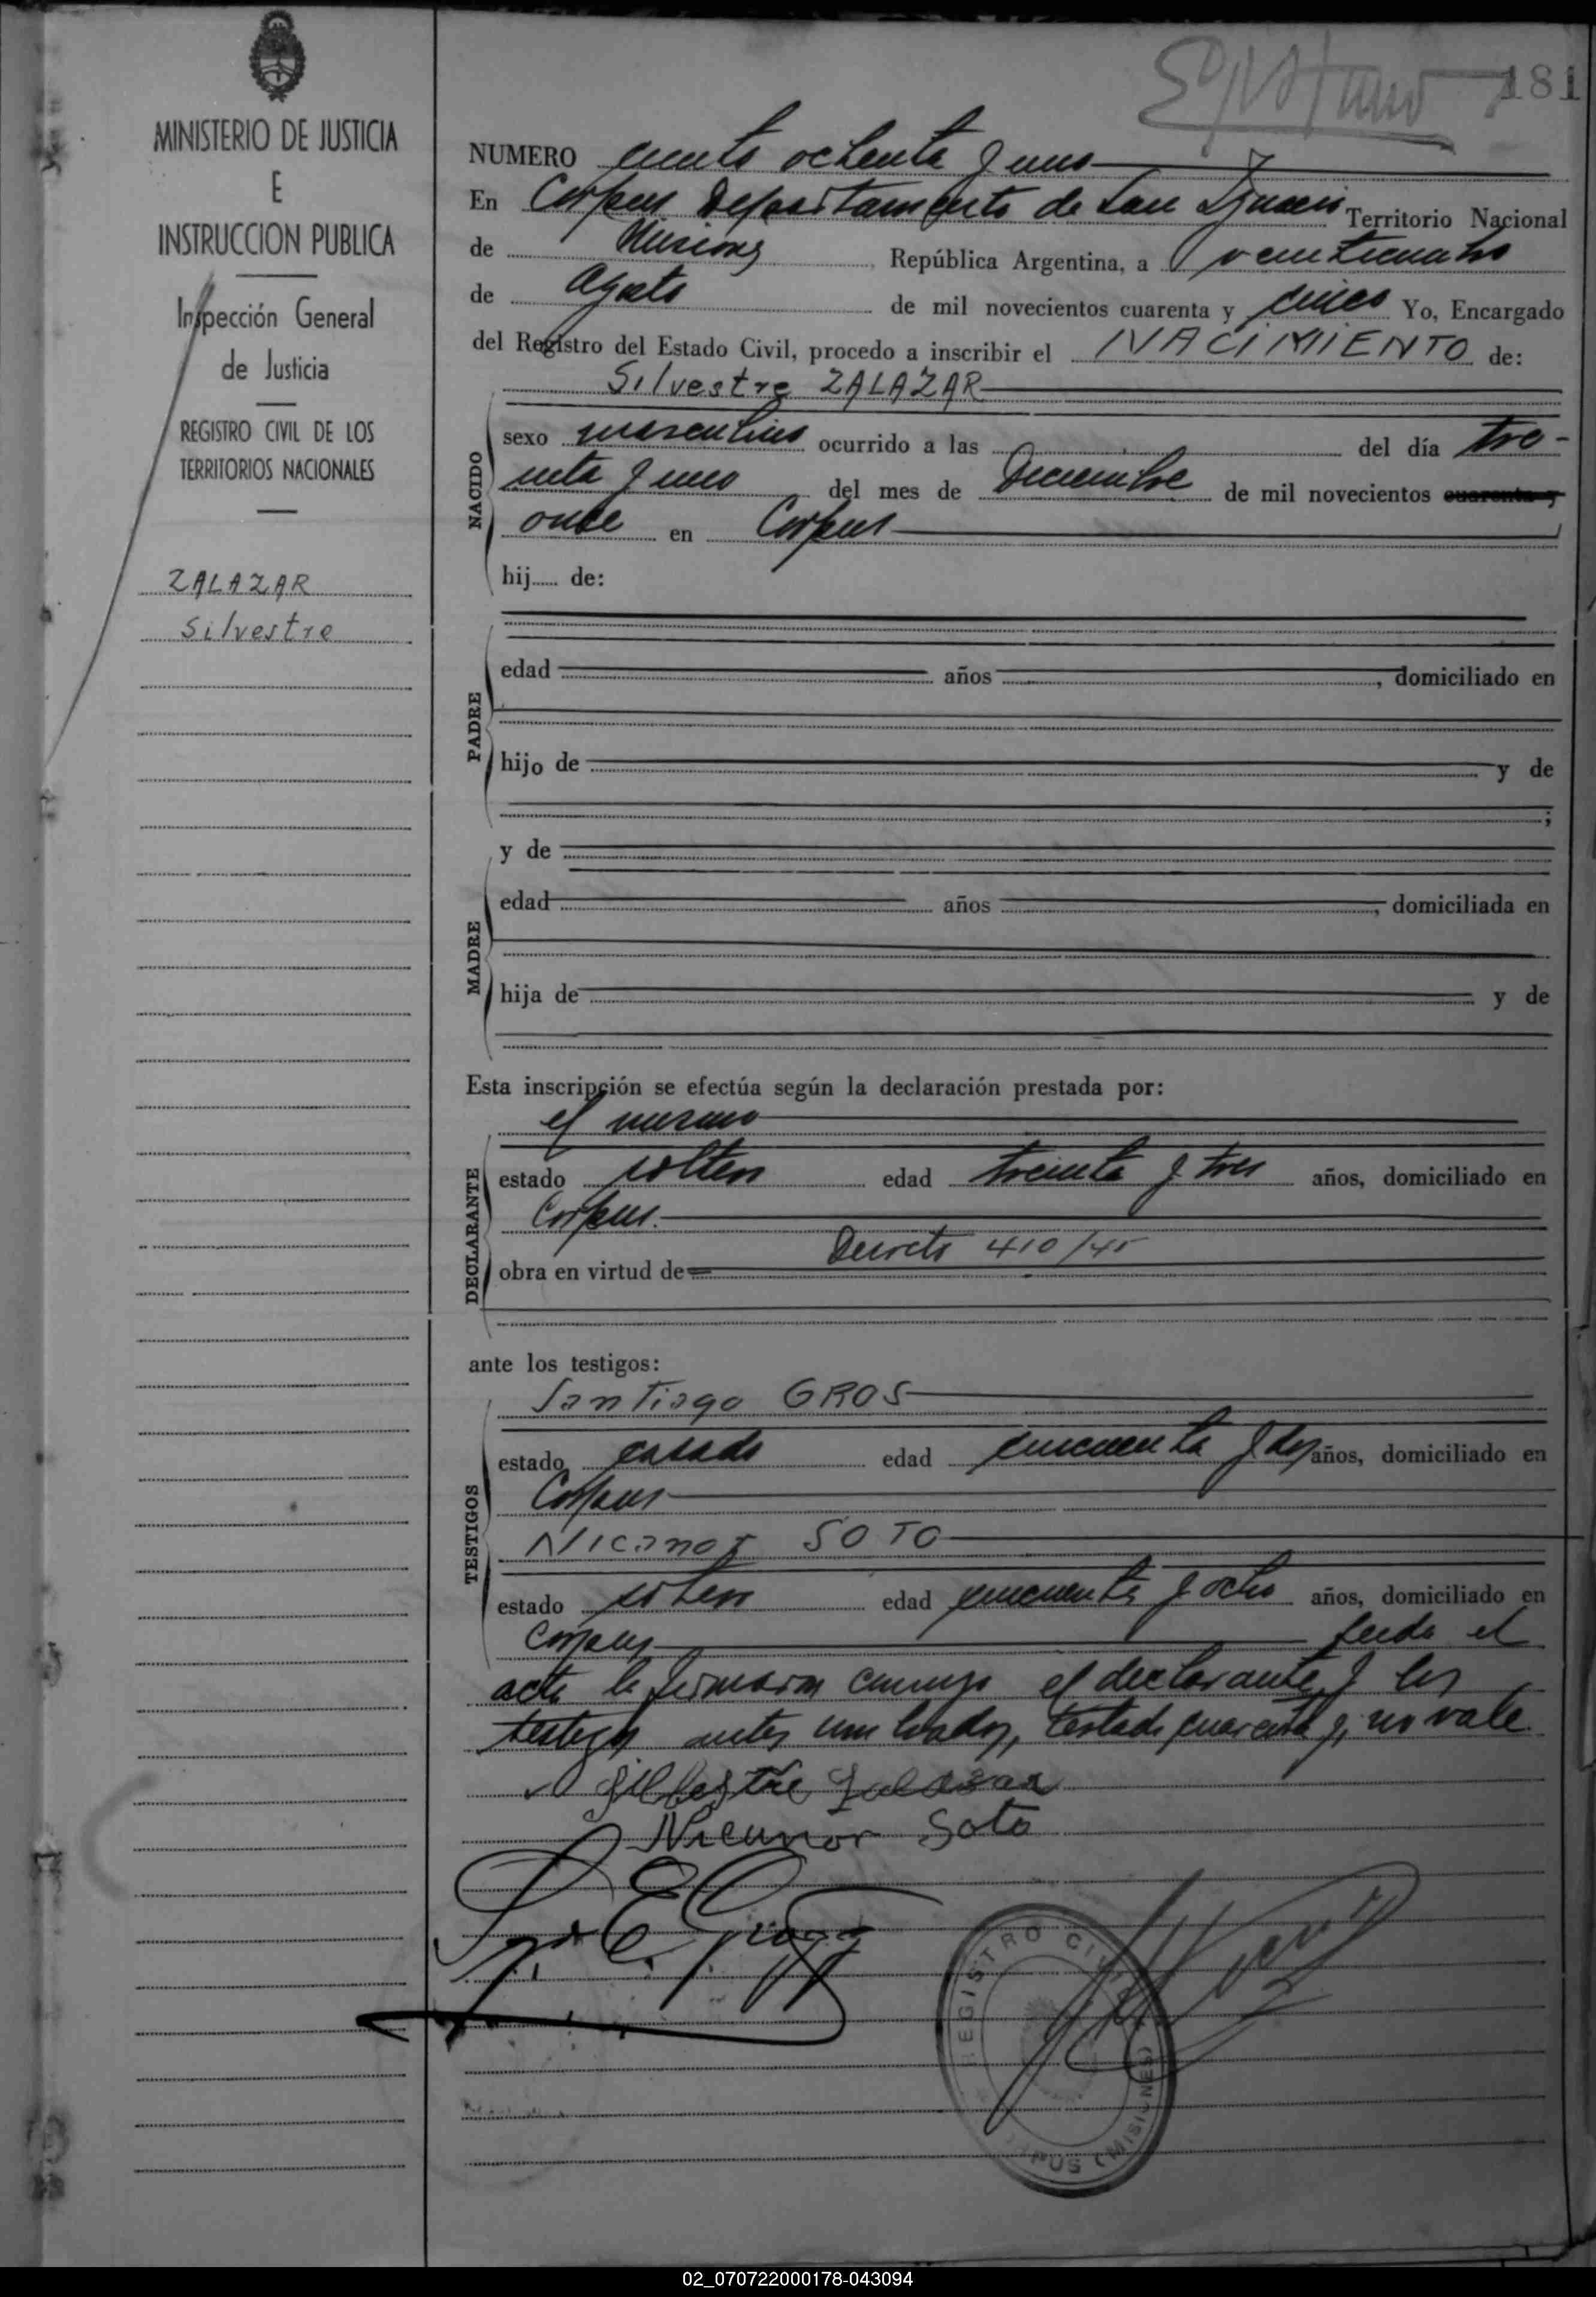 181
MINISTERIO DE JUSTICIA
E
INSTRUCCION PUBLICA
Inspección General
de Justicia
REGISTRO CIVIL DE LOS
TERRITORIOS NACIONALES
ZALAZAR
Silvestre
NUMERO ciento ochenta y uno
En Corpus Departamento de San Ignacio Territorio Nacional
de Misiones República Argentina, a veinticuatro
de Agosto de mil novecientos cuarenta y cinco Yo, Encargado
del Registro del Estado Civil, procedo a inscribir el NACIMIENTO de:
Silvestre ZALAZAR
NACIDO
sexo masculino ocurrido a las del día tre-
inta y uno del mes de Diciembre de mil novecientos cuarenta y
once en Corpus
hij...... de:
PADRE
edad años , domiciliado en
hijo de y de
;
y de
MADRE
edad años , domiciliada en
hija de y de
Esta inscripción se efectúa según la declaración prestada por:
el mismo
DECLARANTE
estado soltero edad treinta y tres años, domiciliado en
Corpus.
obra en virtud de Decreto 410/45
ante los testigos:
Santiago GROS
TESTIGOS
estado casado edad cincuenta y dos años, domiciliado en
Corpus
Nicanor SOTO
estado soltero edad cincuenta y ocho años, domiciliado en
Corpus leida el
acta la firmaron conmigo el declarante y los
testigos antes nombrados, testado cuarenta y, no vale
Silbestre Zalazar
Nicanor Soto
REGISTRO CIVIL
CORPUS (MISIONES)
02_070722000178-043094